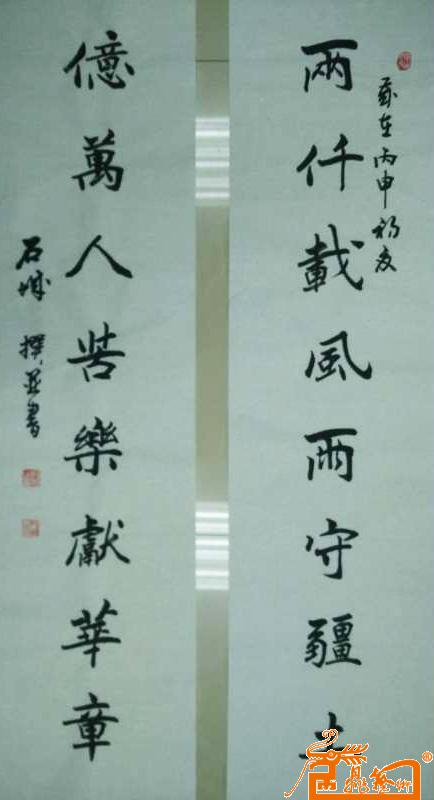 歲在丙申初夏
兩仟載風雨守疆土
億萬人苦樂獻華章
石城 撰並書